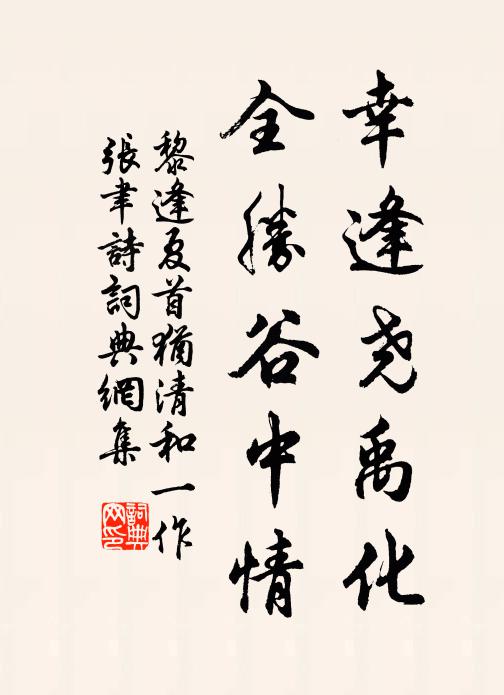 幸逢尧禹化
全勝谷中情
黎逢夏首猶清和一作
張聿詩詞典網集
詞典
网印